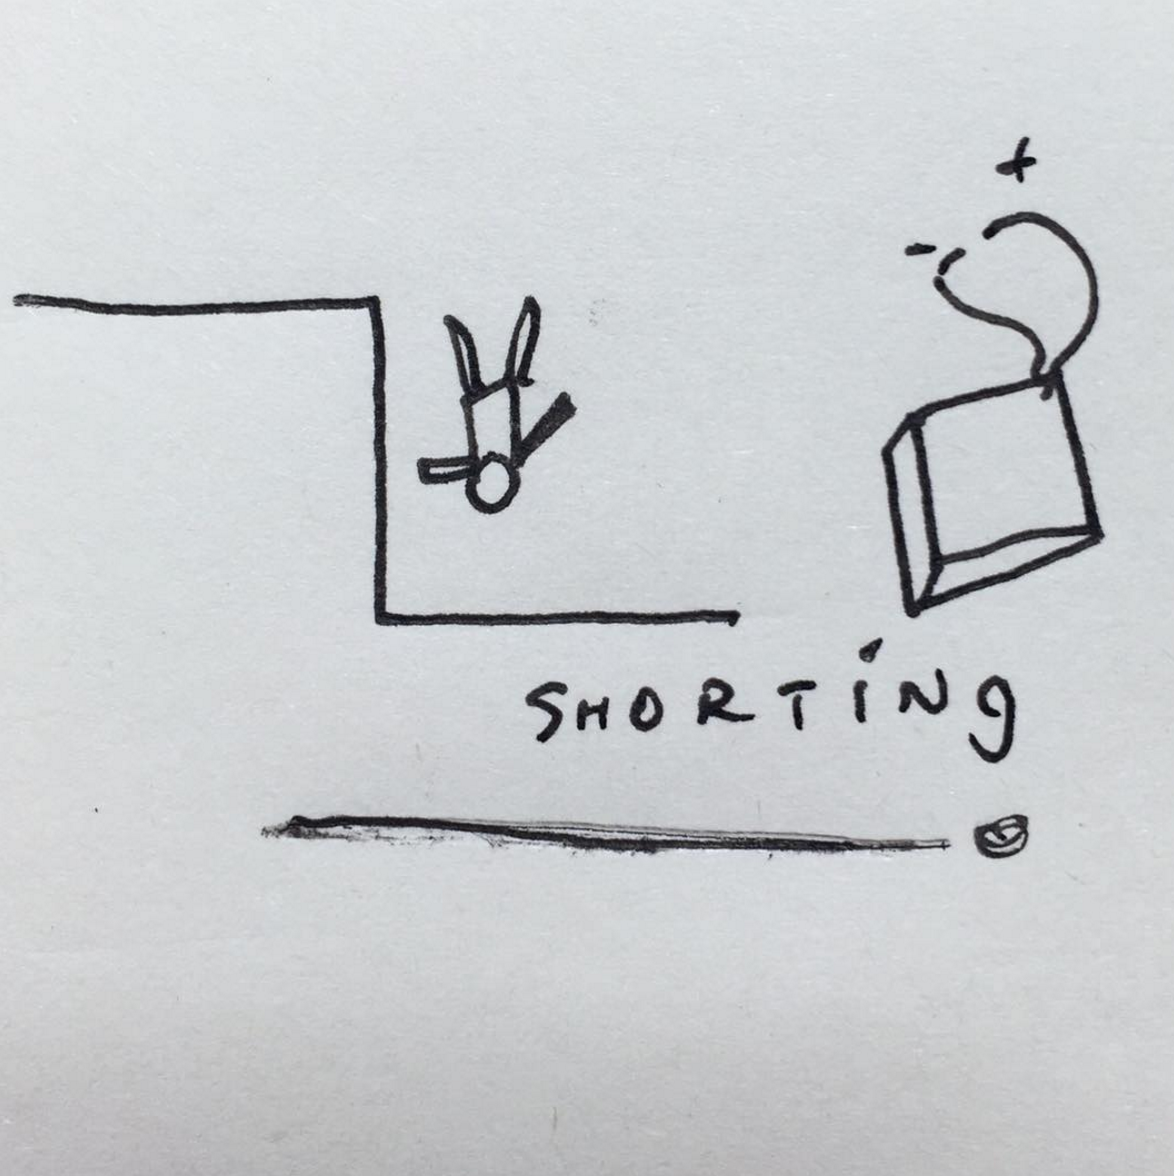 +
-
SHORTiNg